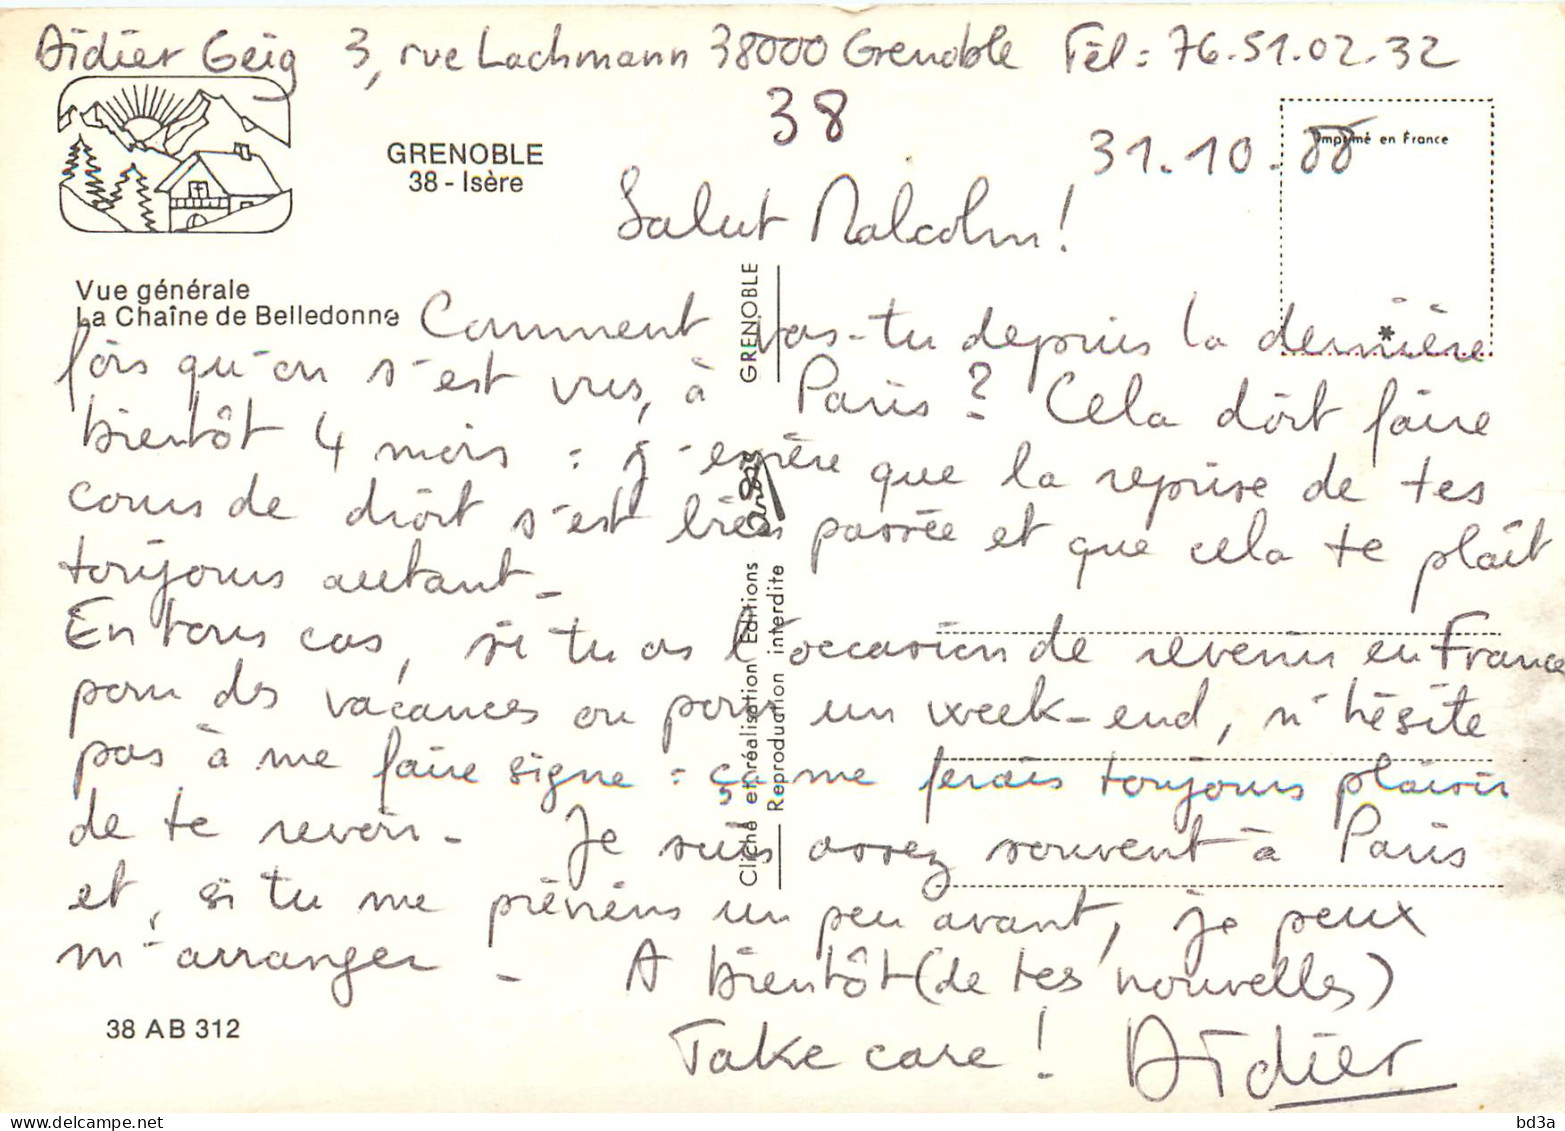 Didier Geig 3, rue Lachmann 38000 Grenoble Tél: 76.51.02.32
38
Imprimé en France
31.10.88
GRENOBLE
38 - Isère
Salut Malcolm!
Vue générale
La Chaîne de Belledonne
Comment vas-tu depuis la dernière
fois qu'on s'est vus, à Paris? Cela doit faire
bientôt 4 mois : j'espère que la reprise de tes
cours de droit s'est bien passée et que cela te plaît
toujours autant_
En tous cas, si tu as l'occasion de revenir en France
pour des vacances ou pour un week-end, n'hésite
pas à me faire signe : ça me ferais toujours plaisir
de te revoir_ Je suis assez souvent à Paris
et, si tu me préviens un peu avant, je peux
m'arranger_ A bientôt (de tes nouvelles)
Take care! Didier
38 AB 312
Cliché et réalisation Editions
GRENOBLE
Reproduction interdite
bd3a